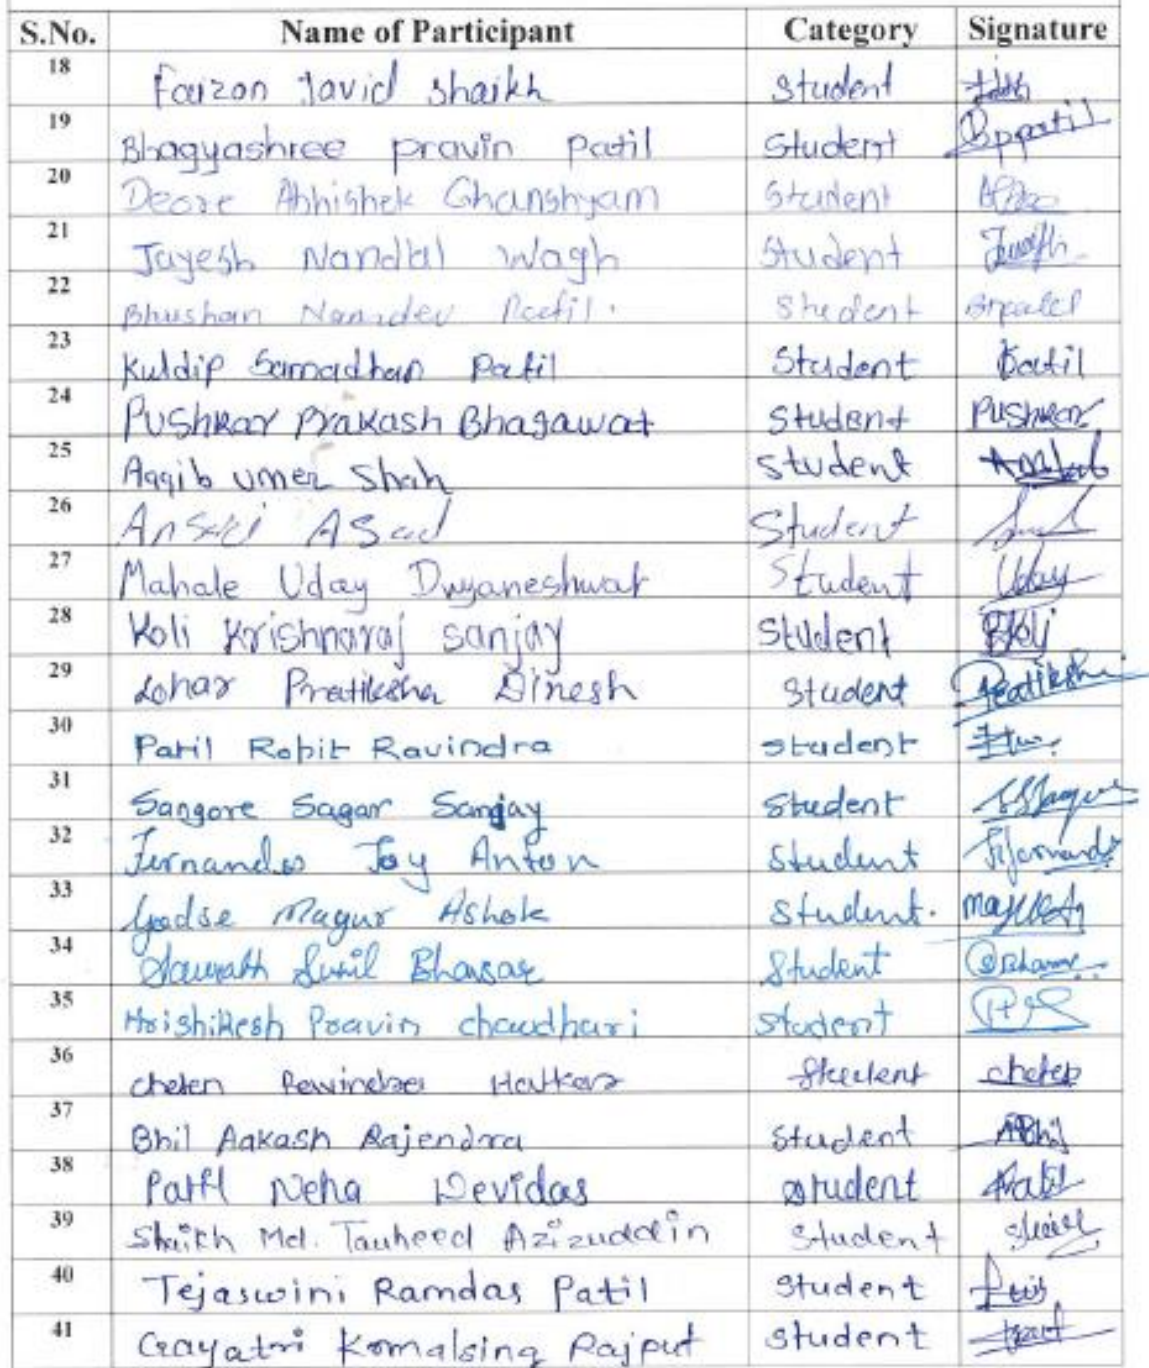 S.No. Name of Participant Category Signature
18 Faizon Javid Shaikh Student
19 Bhagyashree pravin Patil Student Bppatil
20 Deore Abhishek Ghanshyam Student
21 Jayesh Nandlal Wagh Student
22 Bhushan Namdev Patil. Student
23 Kuldip Samadhan Patil Student Patil
24 Pushkar Prakash Bhagawat Student Pushkar
25 Aqqib umer Shah Student
26 Ansari ASad Student
27 Mahale Uday Dnyaneshwar Student Uday
28 Koli Krishnaraj Sanjay Student Koli
29 Lohar Pratiksha Dinesh Student Pratiksha
30 Patil Rohit Ravindra Student
31 Sangore Sagar Sanjay Student
32 Fernandes Joy Anton Student
33 Godse Mayur Ashok Student.
34 Saurabh Sunil Bhavsar Student
35 Hrishikesh Pravin chaudhari Student
36 cheten Ravindra Hatkar Student cheten
37 Bhil Aakash Rajendra Student ABhil
38 Patil Neha Devidas Student Patil
39 Shaikh Md. Tauheed Azizuddin Student
40 Tejaswini Ramdas Patil Student
41 Gayatri Komalsing Rajput Student